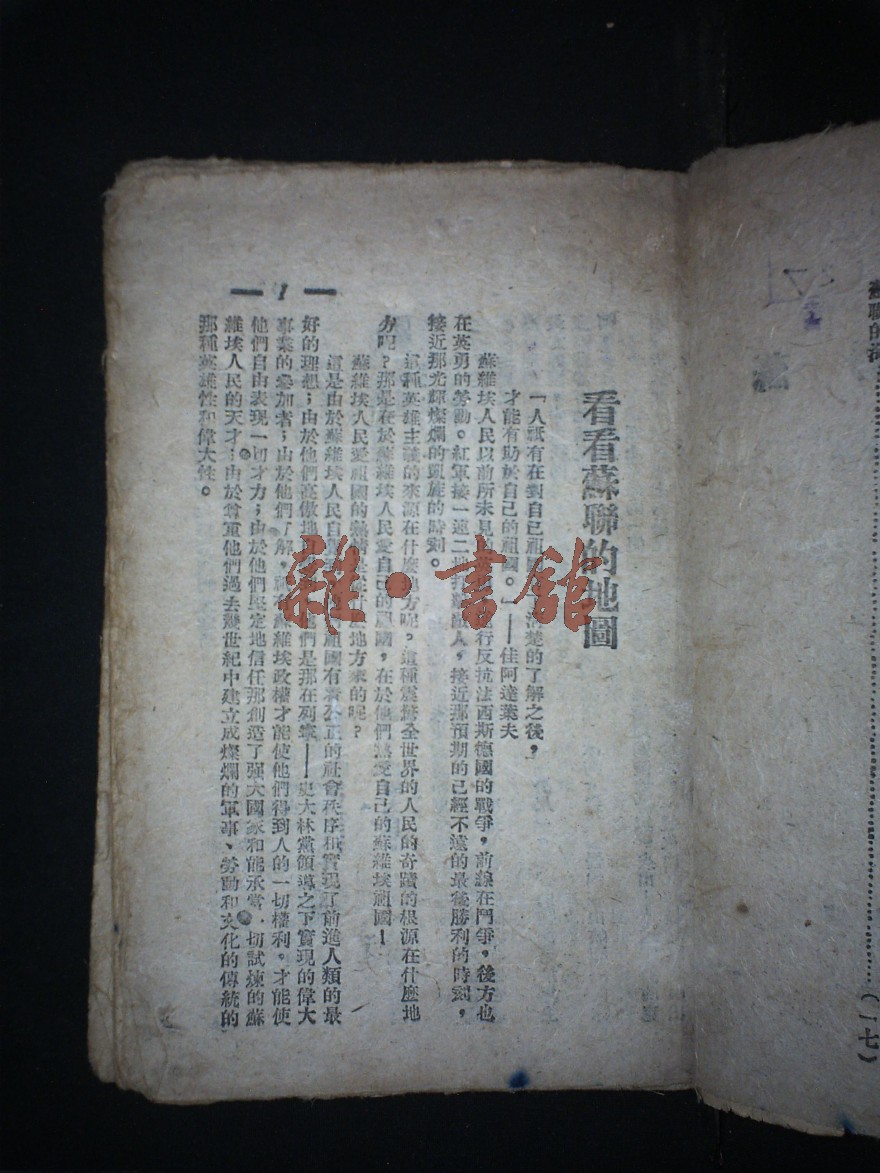 看看蘇聯的地圖
「人祇有在對自己祖國 清楚的了解之後，
才能有助於自己的祖國。」——佳阿達葉夫
蘇維埃人民以前所未見的 行反抗法西斯德國的戰爭，前線在鬥爭，後方也
在英勇的勞動。紅軍接一連二地打 敵人，接近那預期的已經不遠的最後勝利的時刻，
接近那光輝燦爛的凱旋的時刻。
這種英雄主義的來源在什麼地方呢？這種震驚全世界的人民的奇蹟的根源在什麼地
方呢？那是在於蘇維埃人民愛自己的祖國，在於他們熱愛自己的蘇維埃祖國！
蘇維埃人民愛祖國的熱情是從什麼地方來的呢？
這是由於蘇維埃人民自 祖國有着公正的社會秩序和實現了前進人類的最
好的理想；由於他們高傲地 他們是那在列寧——史大林黨領導之下實現的偉大
事業的參加者；由於他們了解， 蘇維埃政權才能使他們得到人的一切權利。才能使
他們自由表現一切才力；由於他們堅定地信任那創造了强大國家和能承當一切試煉的蘇
維埃人民的天才；由於尊重他們過去幾世紀中建立成燦爛的軍事、勞動和文化的傳統的
那種英雄性和偉大性。
— 1 —
雜·書館
蘇聯的
（一七）